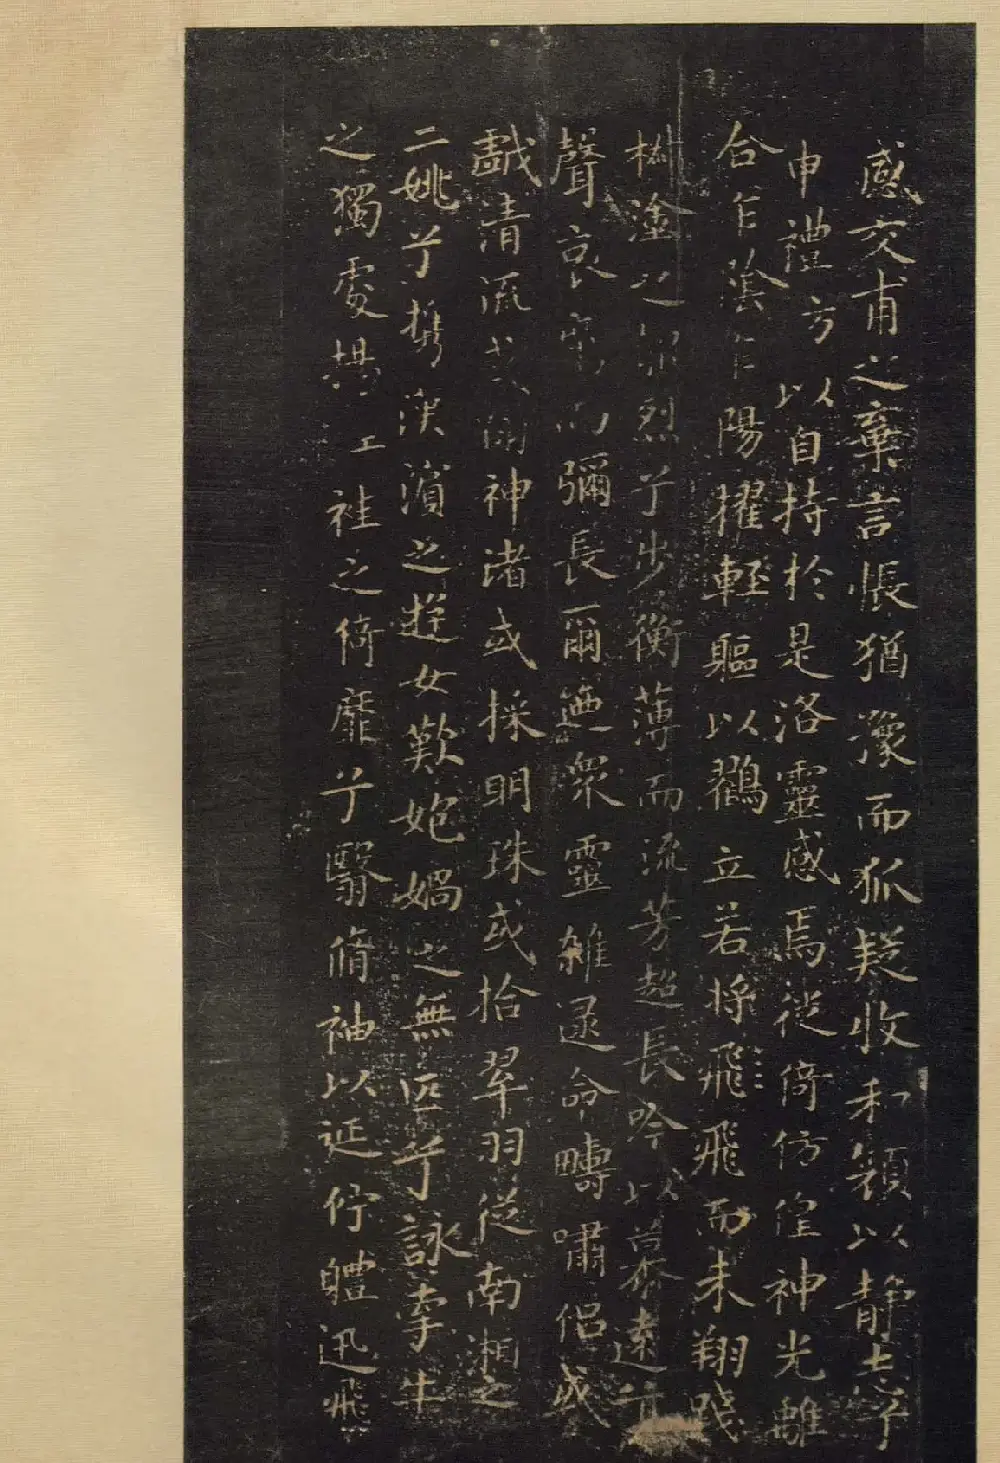 感交甫之棄言悵猶豫而狐疑收和顏以静志兮
申禮方以自持於是洛靈感焉徙倚仿偟神光離
合乍陰乍陽擢輕軀以鶴立若將飛飛而未翔踐
椒塗之郁烈兮步衡薄而流芳超長吟以慕遠兮
聲哀厲而彌長爾迺衆靈雜遝命疇嘯侣或
戲清流或翔神渚或採明珠或拾翠羽從南湘之
二姚兮攜漢濱之遊女歎媯之無匹兮詠牽牛
之獨處揚袿之倚靡兮翳脩袖以延佇軆迅飛